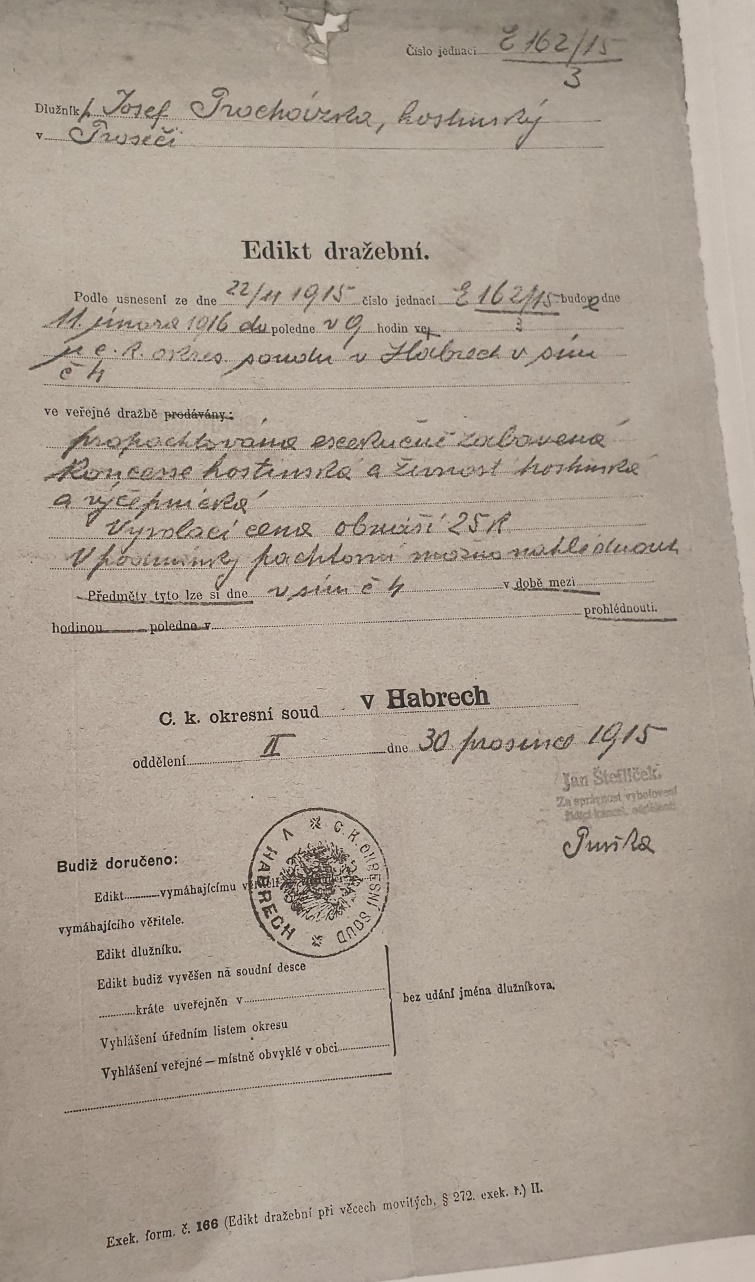 Číslo jednací E 162/15
3
Dlužník p. Josef Procházka, hostinský
v Proseči
Edikt dražební.
Podle usnesení ze dne 22/11 1915 číslo jednací E 162/15 bude dne
3
11. února 1916 do poledne v 9 hodin
u c. k. okres. soudu v Habrech v síni
č 4
ve veřejné dražbě prodávány:
propachtována exekučně zabavená
koncesse hostinská a živnost hostinská
a výčepnická
Vyvolací cena obnáší 25 K
V podmínky pachtovní možno nahlédnout
Předměty tyto lze si dne v síni č 4 v době mezi
hodinou poledne v prohlédnouti.
C. k. okresní soud v Habrech
oddělení II dne 30 prosince 1915
Jan Štefliček
Za správnost vyhotovení
Budiž doručeno:
Edikt vymáhajícímu
vymáhajícího věřitele.
Edikt dlužníku.
Edikt budiž vyvěšen na soudní desce
kráte uveřejněn v
bez udání jména dlužníkova.
Vyhlášení úředním listem okresu
Vyhlášení veřejné — místně obvyklé v obci
C. K. OKRESNÍ SOUD V HABRECH
Exek. form. č. 166 (Edikt dražební při věcech movitých, § 272. exek. ř.) II.